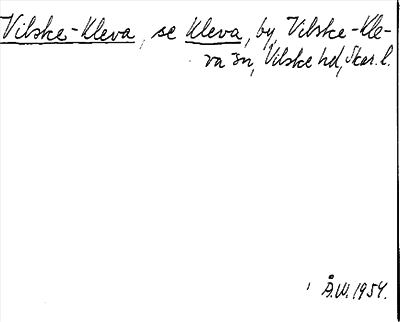 Vilske-Kleva, se Kleva, by, Vilske-Kle-
va sn, Vilske hd, Skar. l.
Å.W. 1954.